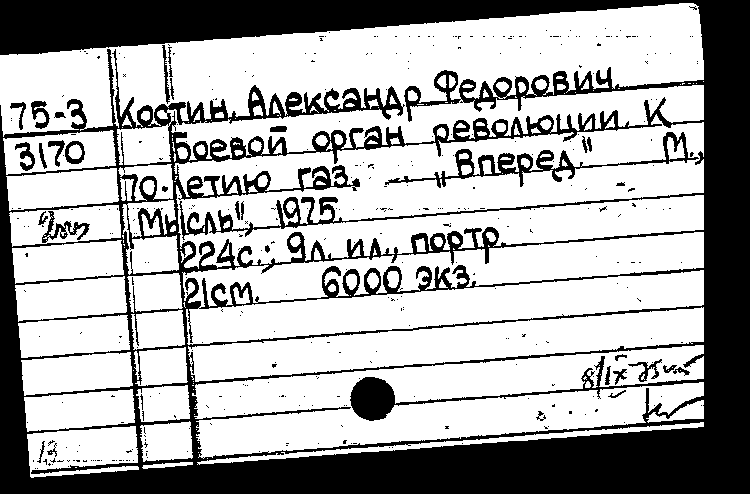 75-3 Костин, Александр Федорович.
3170 Боевой орган революции. К
70-летию газ. — „Вперед." М.,
„Мысль", 1975.
224с.; 9л. ил., портр.
21см. 6000 экз.
8/IX 75
13